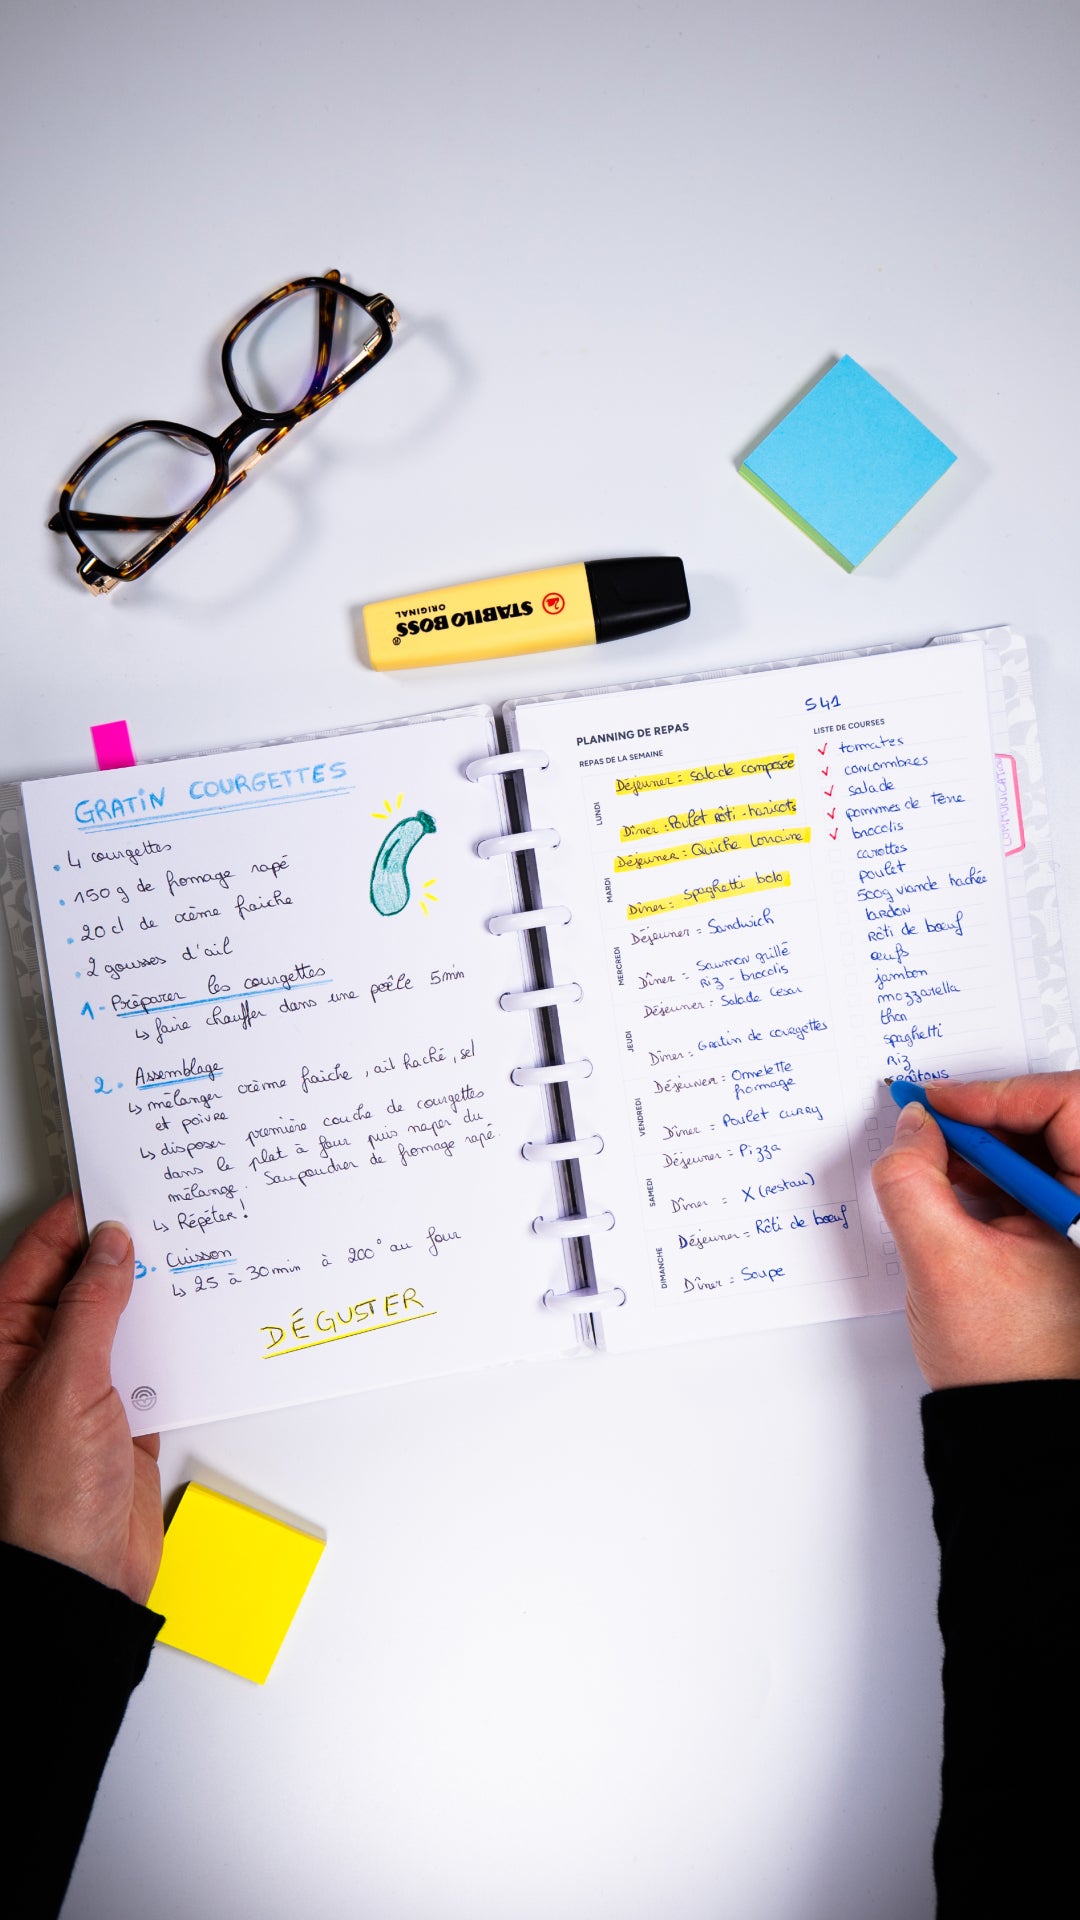 STABILO BOSS®
ORIGINAL
GRATIN COURGETTES
4 courgettes
150 g de fromage rapé
20 cl de crème fraiche
2 gousses d'ail
1 - Préparer les courgettes
↳ faire chauffer dans une poêle 5min
2. Assemblage
↳ mélanger crème fraiche, ail haché, sel
et poivre
↳ disposer première couche de courgettes
dans le plat à four puis naper du
mélange. Saupoudrer de fromage rapé.
↳ Répéter!
3. Cuisson
↳ 25 à 30min à 200° au four
DÉGUSTER
S41
PLANNING DE REPAS
REPAS DE LA SEMAINE
LUNDI
Déjeuner = Salade composée
Dîner = Poulet Rôti - haricots
MARDI
Déjeuner = Quiche Lorraine
Dîner = Spaghetti bolo
MERCREDI
Déjeuner = Sandwich
Dîner = Saumon grillé
Riz - brocolis
JEUDI
Déjeuner = Salade Cesar
Dîner = Gratin de courgettes
VENDREDI
Déjeuner = Omelette
fromage
Dîner = Poulet curry
SAMEDI
Déjeuner = Pizza
Dîner = X (restau)
DIMANCHE
Déjeuner = Rôti de boeuf
Dîner = Soupe
LISTE DE COURSES
tomates
concombres
salade
pommes de terre
brocolis
carottes
poulet
500g viande hachée
lardon
Rôti de boeuf
œufs
jambon
mozzarella
thon
spaghetti
Riz
COMMUNICATION